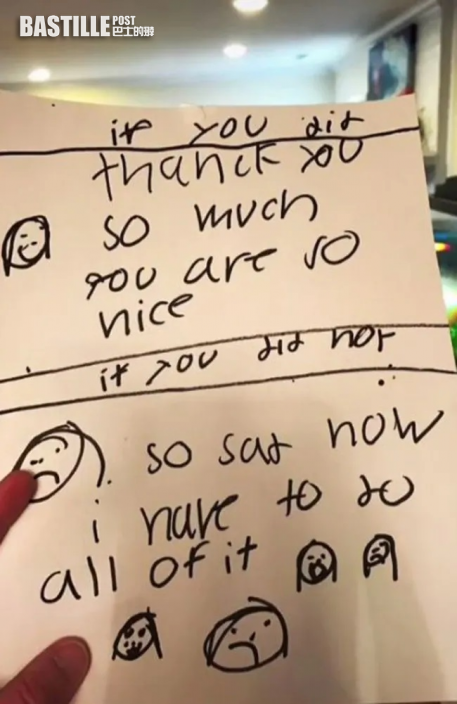 BASTILLE POST
巴士的報
if you did
thanck you
so much
you are so
nice
if you did not
so sad now
i have to do
all of it